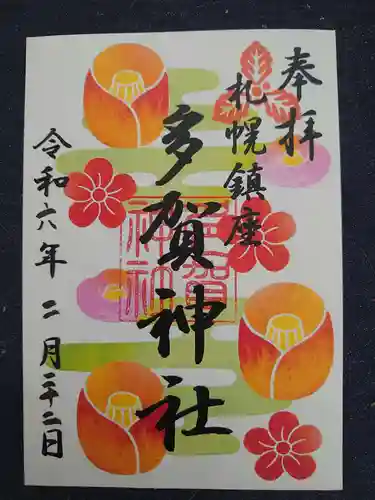 奉拝
札幌鎮座
多賀神社
多賀神社
令和六年 二月二十二日